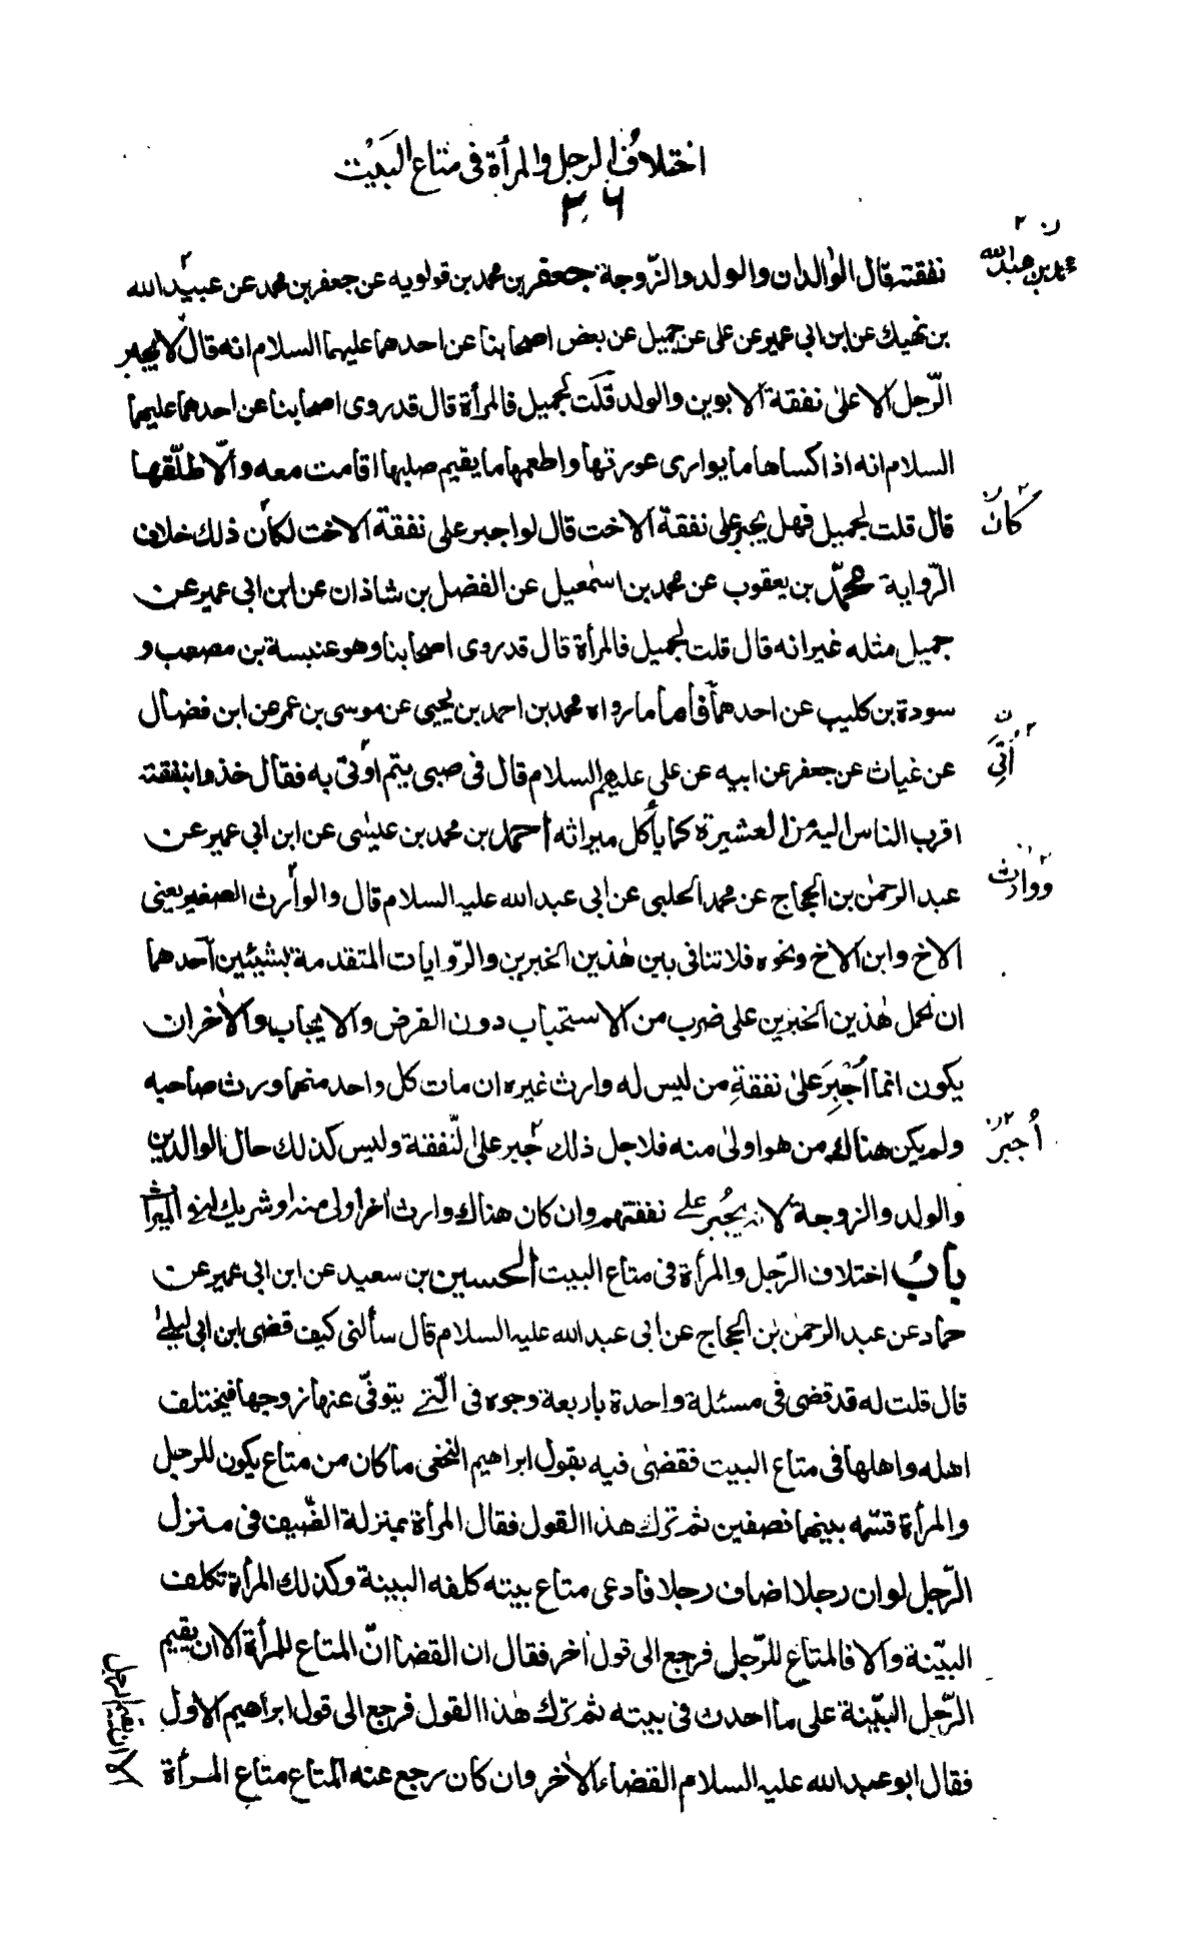 اختلاف الرجل والمرأة فى متاع البَيْت
٣٠٦
نفقته قال الوالدان والولد والزّوجة جعفر بن محمد بن قولويه عن جعفر بن محمد عن عبيد الله
محمد بن عبد الله
بن نهيك عن ابن ابى عمير عن على عن جميل عن بعض اصحابنا عن احدهما عليهما السلام انه قال لا يجبر
الرّجل الا على نفقة الابوين والولد قلت لجميل فالمرأة قال قد روى اصحابنا عن احدهما عليهما
السلام انه اذا كساها ما يوارى عورتها واطعمها ما يقيم صلبها اقامت معه والّا طلّقها
قال قلت لجميل فهل يجبر على نفقة الاخت قال لو اجبر على نفقة الاخت لكان ذلك خلاف
كانَ
الرّواية محمّد بن يعقوب عن محمد بن اسمعيل عن الفضل بن شاذان عن ابن ابى عمير عن
جميل مثله غير انه قال قلت لجميل فالمرأة قال قد روى اصحابنا وهو عنبسة بن مصعب و
سودة بن كليب عن احدهما فاما ما رواه محمد بن احمد بن يحيى عن موسى بن عمر عن ابن فضال
عن غياث عن جعفر عن ابيه عن على عليهم السلام قال فى صبى يتم اوتى به فقال خذوا بنفقته
أُتِيَ
اقرب الناس اليه من العشيرة كما يأكل ميراثه أحمد بن محمد بن عيسى عن ابن ابى عمير عن
عبد الرحمن بن الحجاج عن محمد الحلبى عن ابى عبد الله عليه السلام قال والوارث الصغير يعنى
ووارث
الاخ وابن الاخ ونحوه فلا تنافى بين هٰذين الخبرين والرّوايات المتقدمة بشيئين احدهما
ان نحمل هٰذين الخبرين على ضرب من الاستحباب دون الفرض والايجاب والاٰخر ان
يكون انما اُجْبِرَ على نفقةِ من ليس له وارث غيره ان مات كل واحد منهما ورث صاحبه
ولم يكن هناك من هو اولى منه فلاجل ذلك جبر على النّفقة وليس كذلك حال الوالدين
اُجبرَ
والولد والزوجة لانه يجُبر على نفقتهم وان كان هناك وارث اٰخر اولى منه او شريك له فى الميراث
بابُ اختلاف الرّجل والمرأة فى متاع البيت الحسين بن سعيد عن ابن ابى عمير عن
حماد عن عبد الرحمٰن بن الحجاج عن ابى عبد الله عليه السلام قال سألنى كيف قضى ابن ابى ليلى
قال قلت له قد قضى فى مسئلة واحدة باربعة وجوه فى الّتى يتوفّى عنها زوجها فيختلف
اهله واهلها فى متاع البيت فقضى فيه بقول ابراهيم النخعى ما كان من متاع يكون للرجل
والمرأة قسّمه بينهما نصفين ثم ترك هذا القول فقال المرأة بمنزلة الضّيف فى منزل
الرّجل لو ان رجلا اضاف رجلا فادعى متاع بيته كلفه البينة وكذلك المرأة تكلف
البيّنة والا فالمتاع للرّجل فرجع الى قول اٰخر فقال ان القضا انّ المتاع للمرأة الا ان يقيم
الرّجل البيّنة على ما احدث فى بيته ثم ترك هٰذا القول فرجع الى قول ابراهيم الاول
فقال ابو عبد الله عليه السلام القضاء الاٰخر وان كان رجع عنه المتاع متاع المرأة
الا ان يقيم الرجل